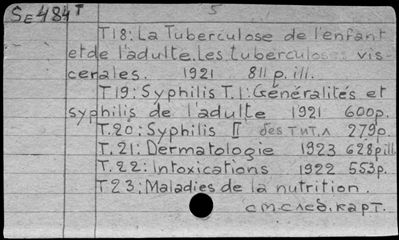 SE484T 5
T18: La Tuberculose de l'enfant
et de l'adulte. Les tuberculoses vis-
cerales. 1921 811 p. ill.
T19: Syphilis T.I: Généralités et
syphilis de l'adulte 1921 600p.
T.20: Syphilis II без тит.л 279p.
T. 21: Dermatologie 1923 628p ill.
T. 22: Intoxications 1922 553p.
T. 23: Maladies de la nutrition.
см.след.карт.